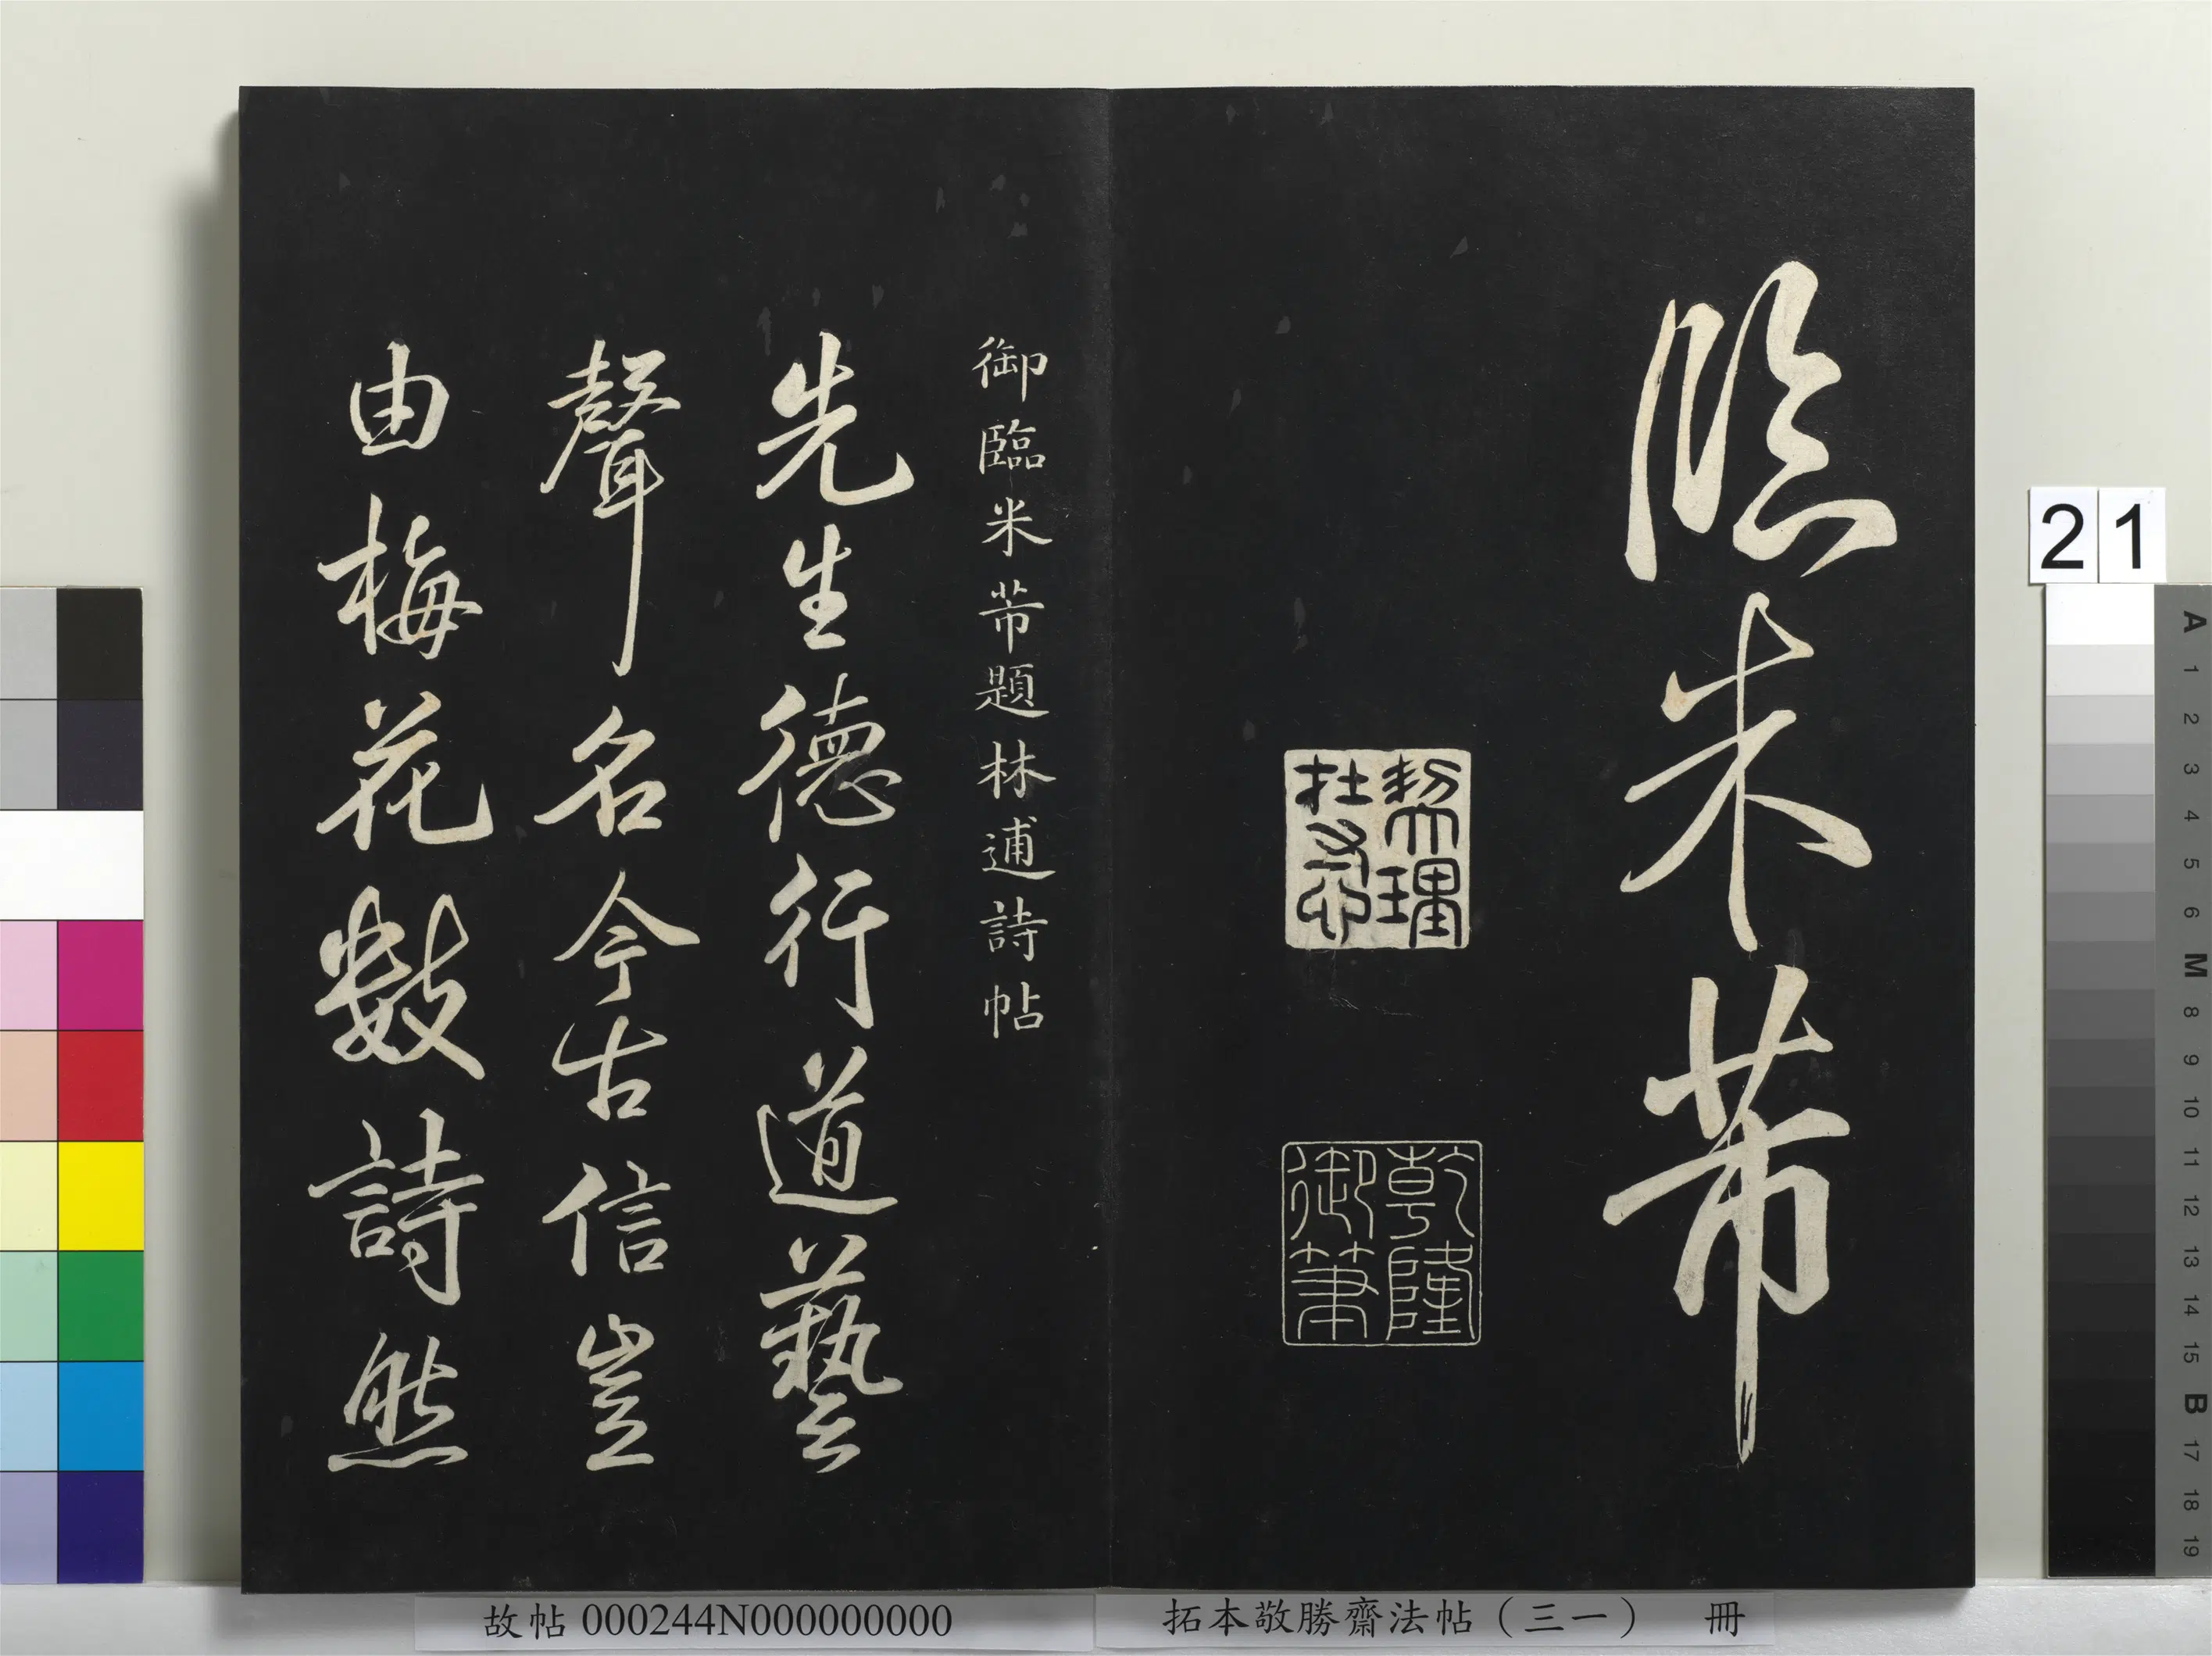 臨米芾
契理在寸心
乾隆御筆
御臨米芾題林逋詩帖
先生德行道藝
聲名今古信豈
由梅花數詩然
故帖 000244N000000000
拓本敬勝齋法帖（三一） 冊
21
A 1 2 3 4 5 6 M 8 9 10 11 12 13 14 15 B 17 18 19